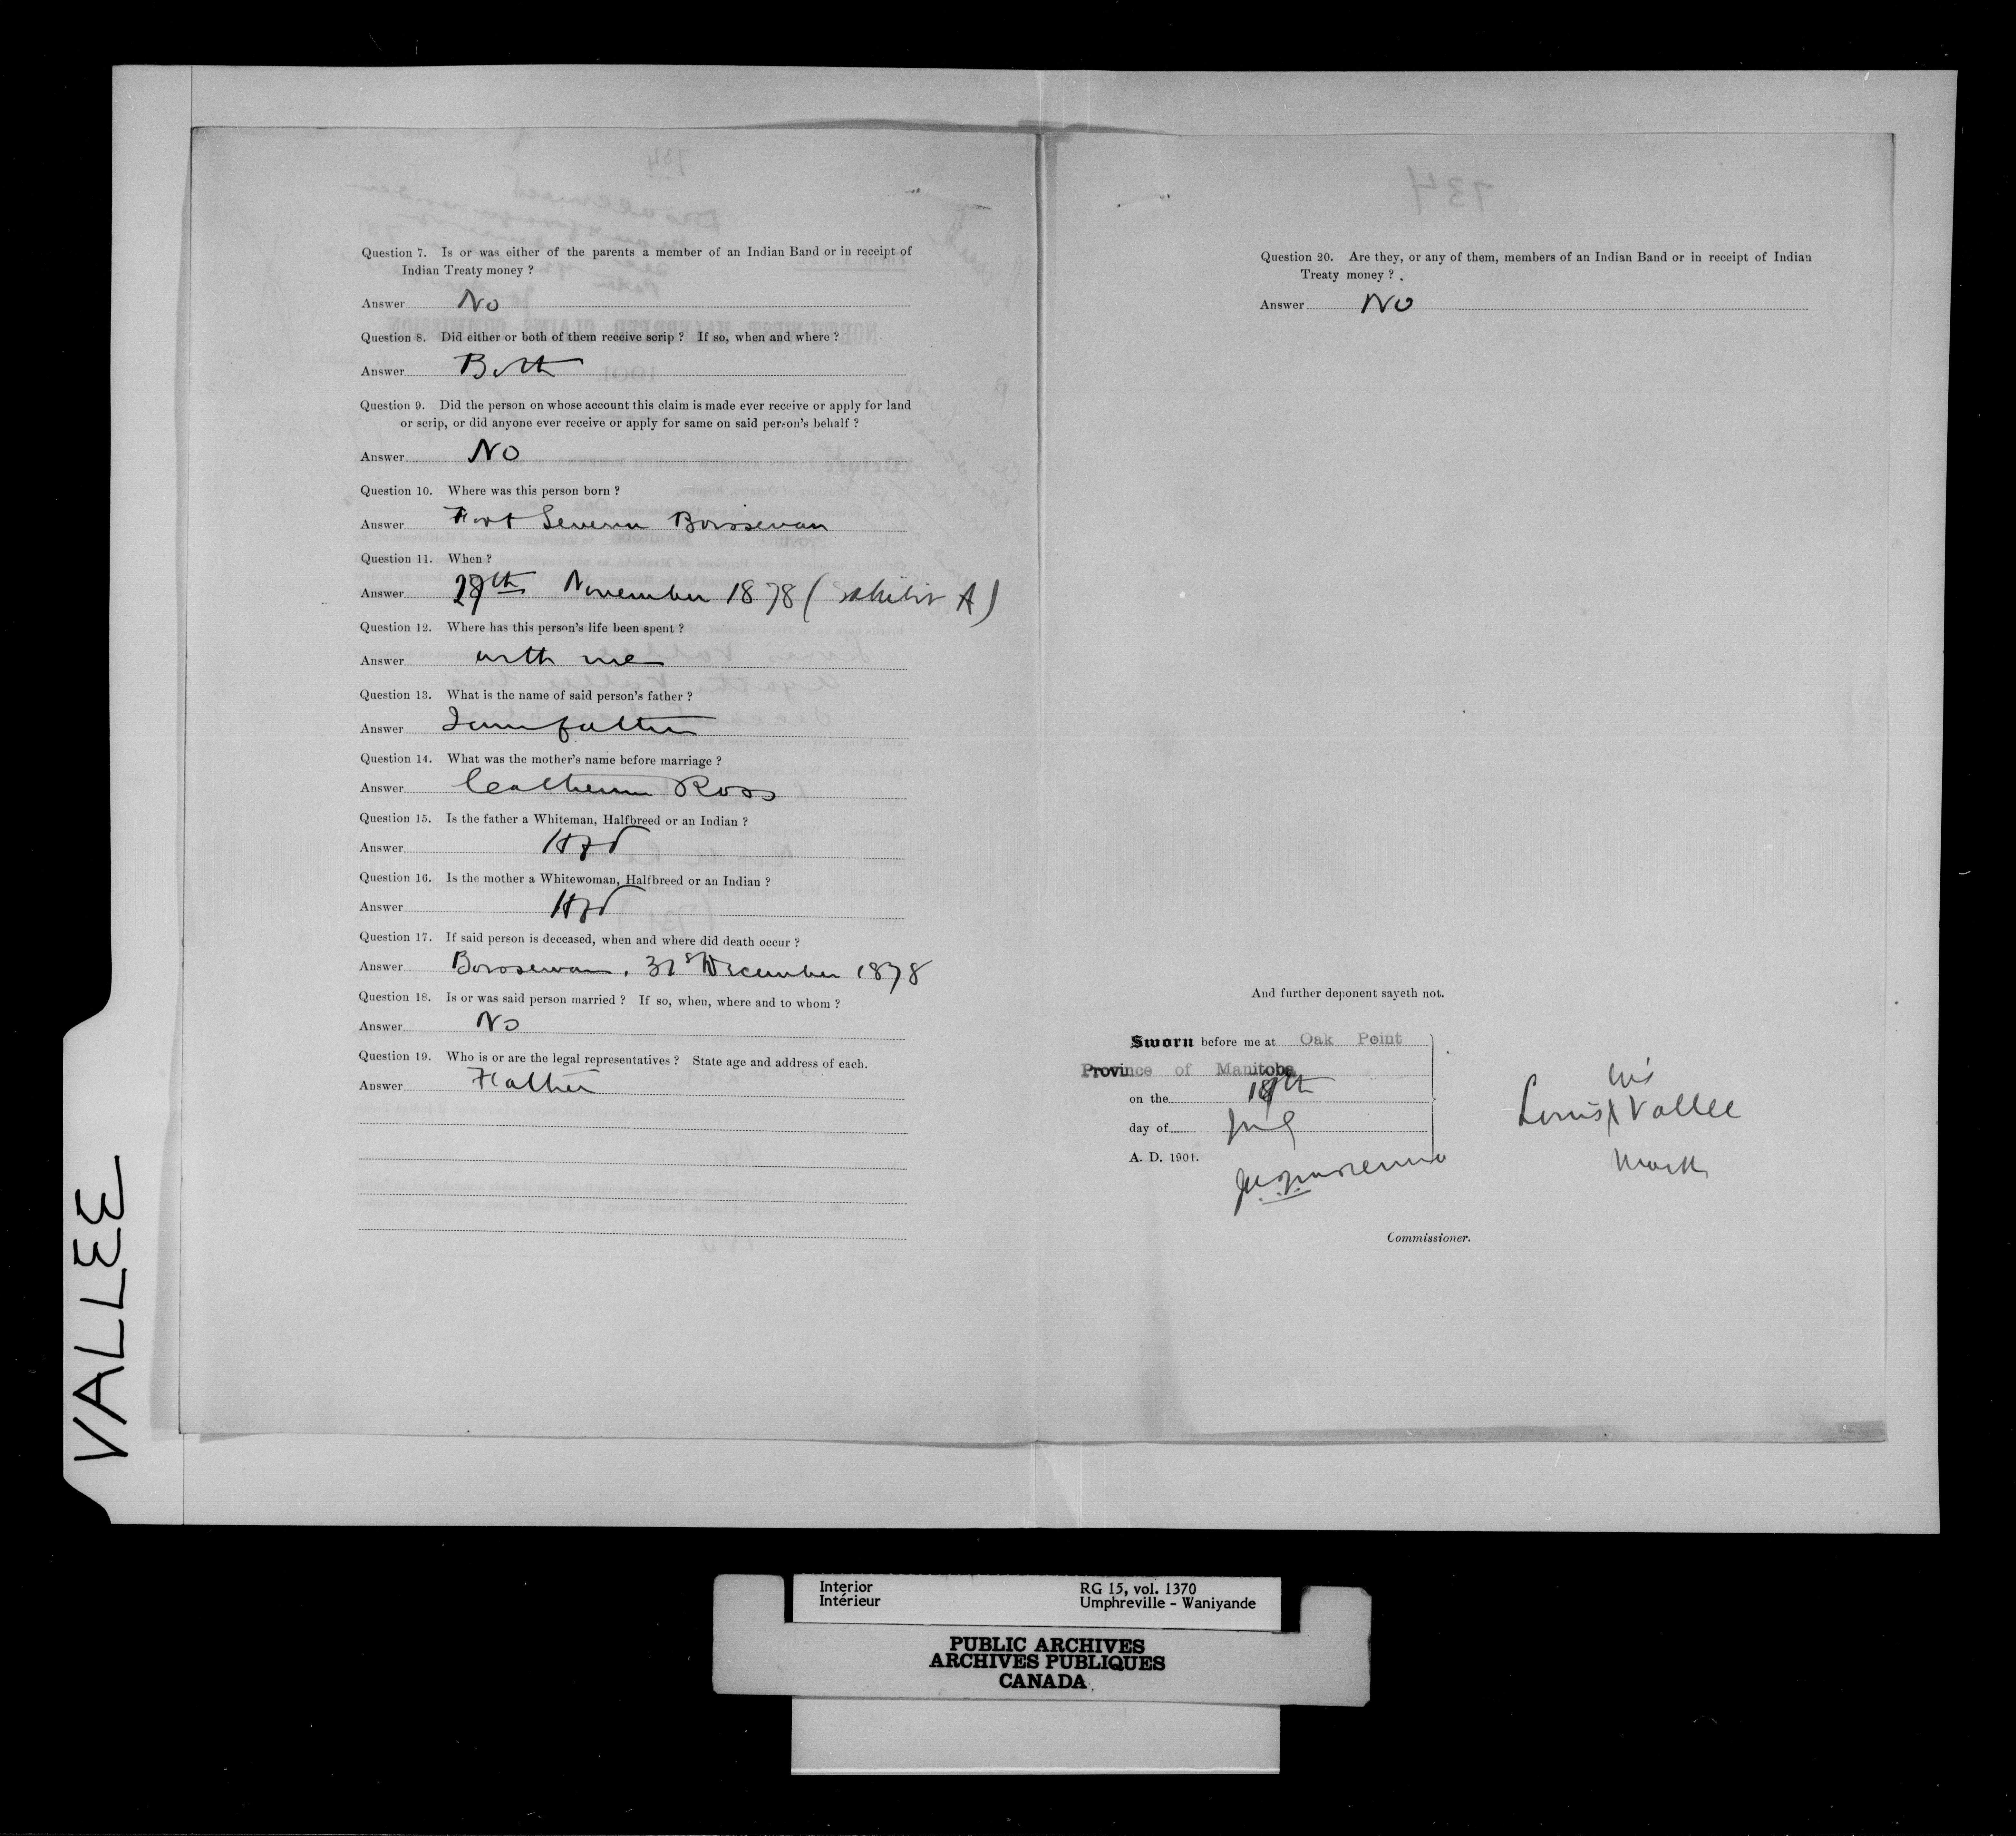 Question 7. Is or was either of the parents a member of an Indian Band or in receipt of
Indian Treaty money ?
Answer No
Question 8. Did either or both of them receive scrip ? If so, when and where ?
Answer Both
Question 9. Did the person on whose account this claim is made ever receive or apply for land
or scrip, or did anyone ever receive or apply for same on said person's behalf ?
Answer No
Question 10. Where was this person born ?
Answer Fort Boissevan
Question 11. When ?
Answer November 1878 (Exhibit A)
Question 12. Where has this person's life been spent ?
Answer with me
Question 13. What is the name of said person's father ?
Answer I am father
Question 14. What was the mother's name before marriage ?
Answer Catherine Ross
Question 15. Is the father a Whiteman, Halfbreed or an Indian ?
Answer
Question 16. Is the mother a Whitewoman, Halfbreed or an Indian ?
Answer
Question 17. If said person is deceased, when and where did death occur ?
Answer Boissevan, 31st December 1878
Question 18. Is or was said person married ? If so, when, where and to whom ?
Answer No
Question 19. Who is or are the legal representatives ? State age and address of each.
Answer Father
734
Question 20. Are they, or any of them, members of an Indian Band or in receipt of Indian
Treaty money ?
Answer No
And further deponent sayeth not.
Sworn before me at Oak Point
Province of Manitoba
on the
day of
A. D. 1901.
his
Louis X Vallee
mark
Commissioner.
VALLEE
Interior
Intérieur
RG 15, vol. 1370
Umphreville - Waniyande
PUBLIC ARCHIVES
ARCHIVES PUBLIQUES
CANADA